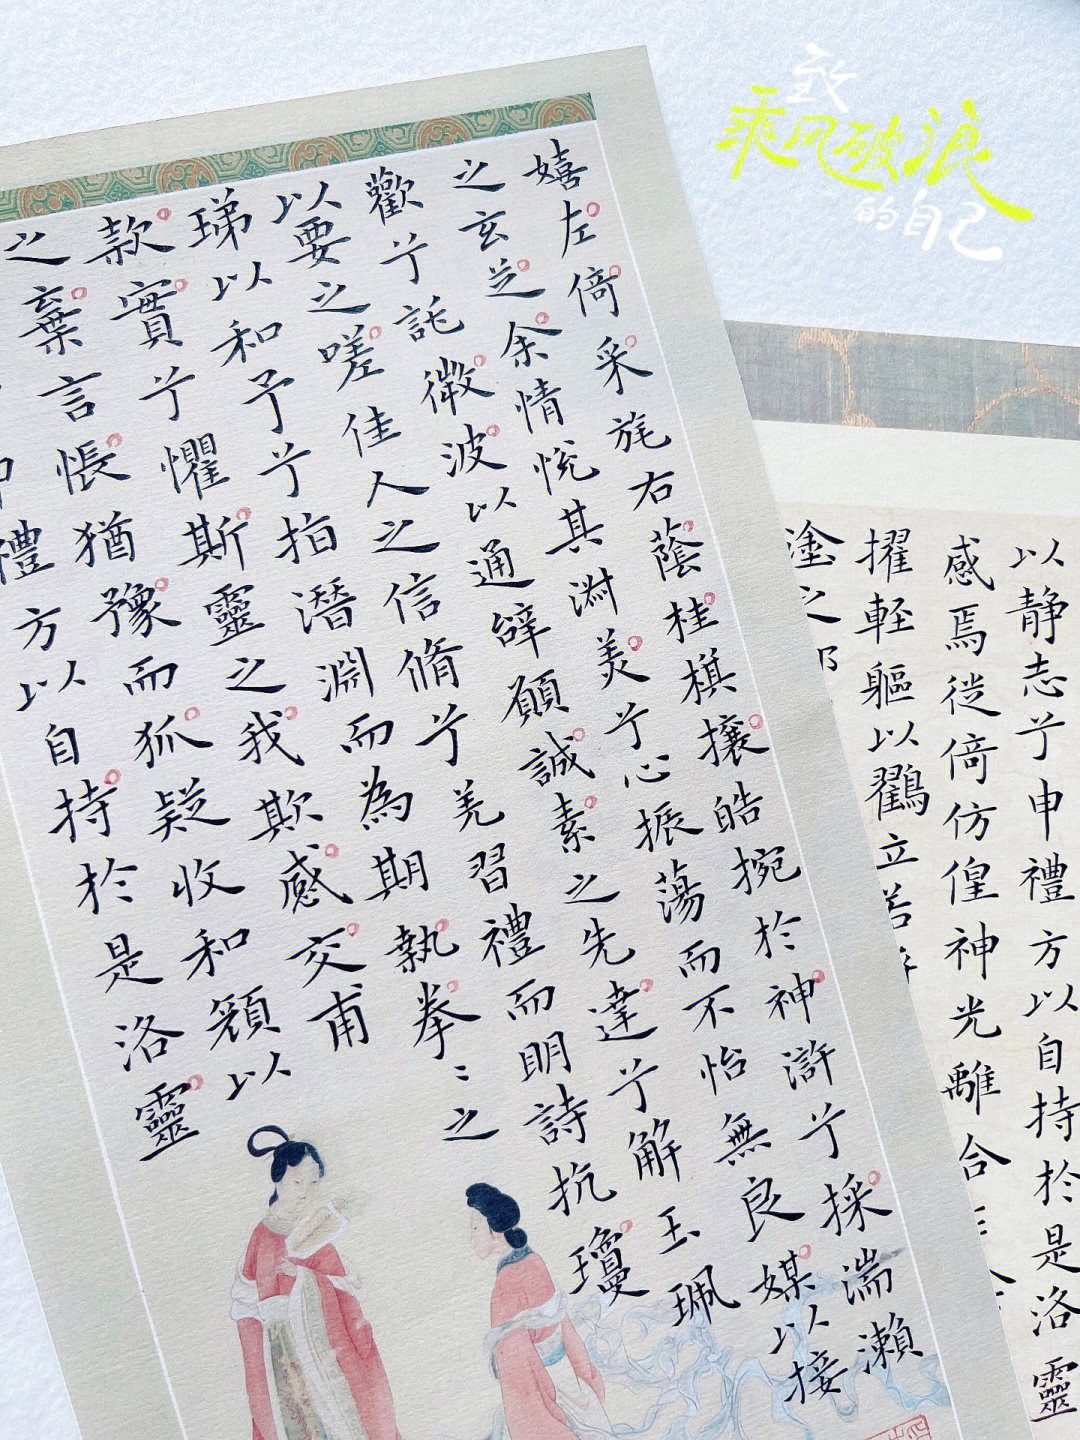 致
乘风破浪
的自己
嬉左倚采旄右蔭桂棋攘皓捥於神滸兮採湍瀬
之玄芝余情恱其淑美兮心振蕩而不怡無良媒以接
歡兮託微波以通辝願誠素之先達兮解玉珮
以要之嗟佳人之信脩兮羌習禮而明詩抗瓊
珶以和予兮指潛淵而為期執拳〻之
款實兮懼斯靈之我欺感交甫
之棄言悵猶豫而狐疑收和顏以
申禮方以自持於是洛靈
以静志兮申禮方以自持於是洛靈
感焉徙倚仿偟神光離合
擢輕軀以鶴立若
塗之